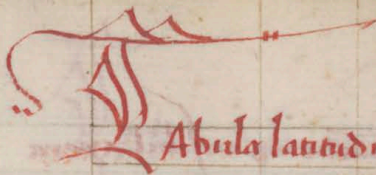 TAbula latitudi